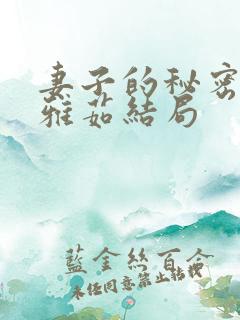 妻子的秘密
雅茹結局
藍金絲百合
未任同意禁止轉載